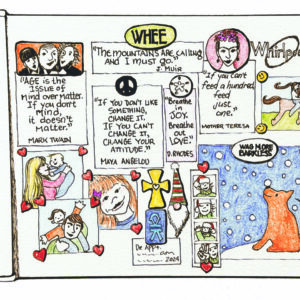 WHEE
"The MOUNTAINS ARE CALLING
AND I MUST GO."
J. MUIR
Whirlpo
"AGE is the
ISSUE of
Mind over Matter.
If you don't
Mind,
it doesn't
MatteR."
MARK TWAIN
"IF YOU DON'T LIKE
SOMETHING,
CHANGE IT.
IF YOU CAN'T
CHANGE IT,
CHANGE YOUR
ATTITUDE."
MAYA ANGELOU
Breathe
in
JOY.
Breathe
out
LOVE."
D. RHODES
"If you can't
feed a hundred
feed
just
one."
MOTHER TERESA
WAS MORE
BARKLESS
De App't.
2024